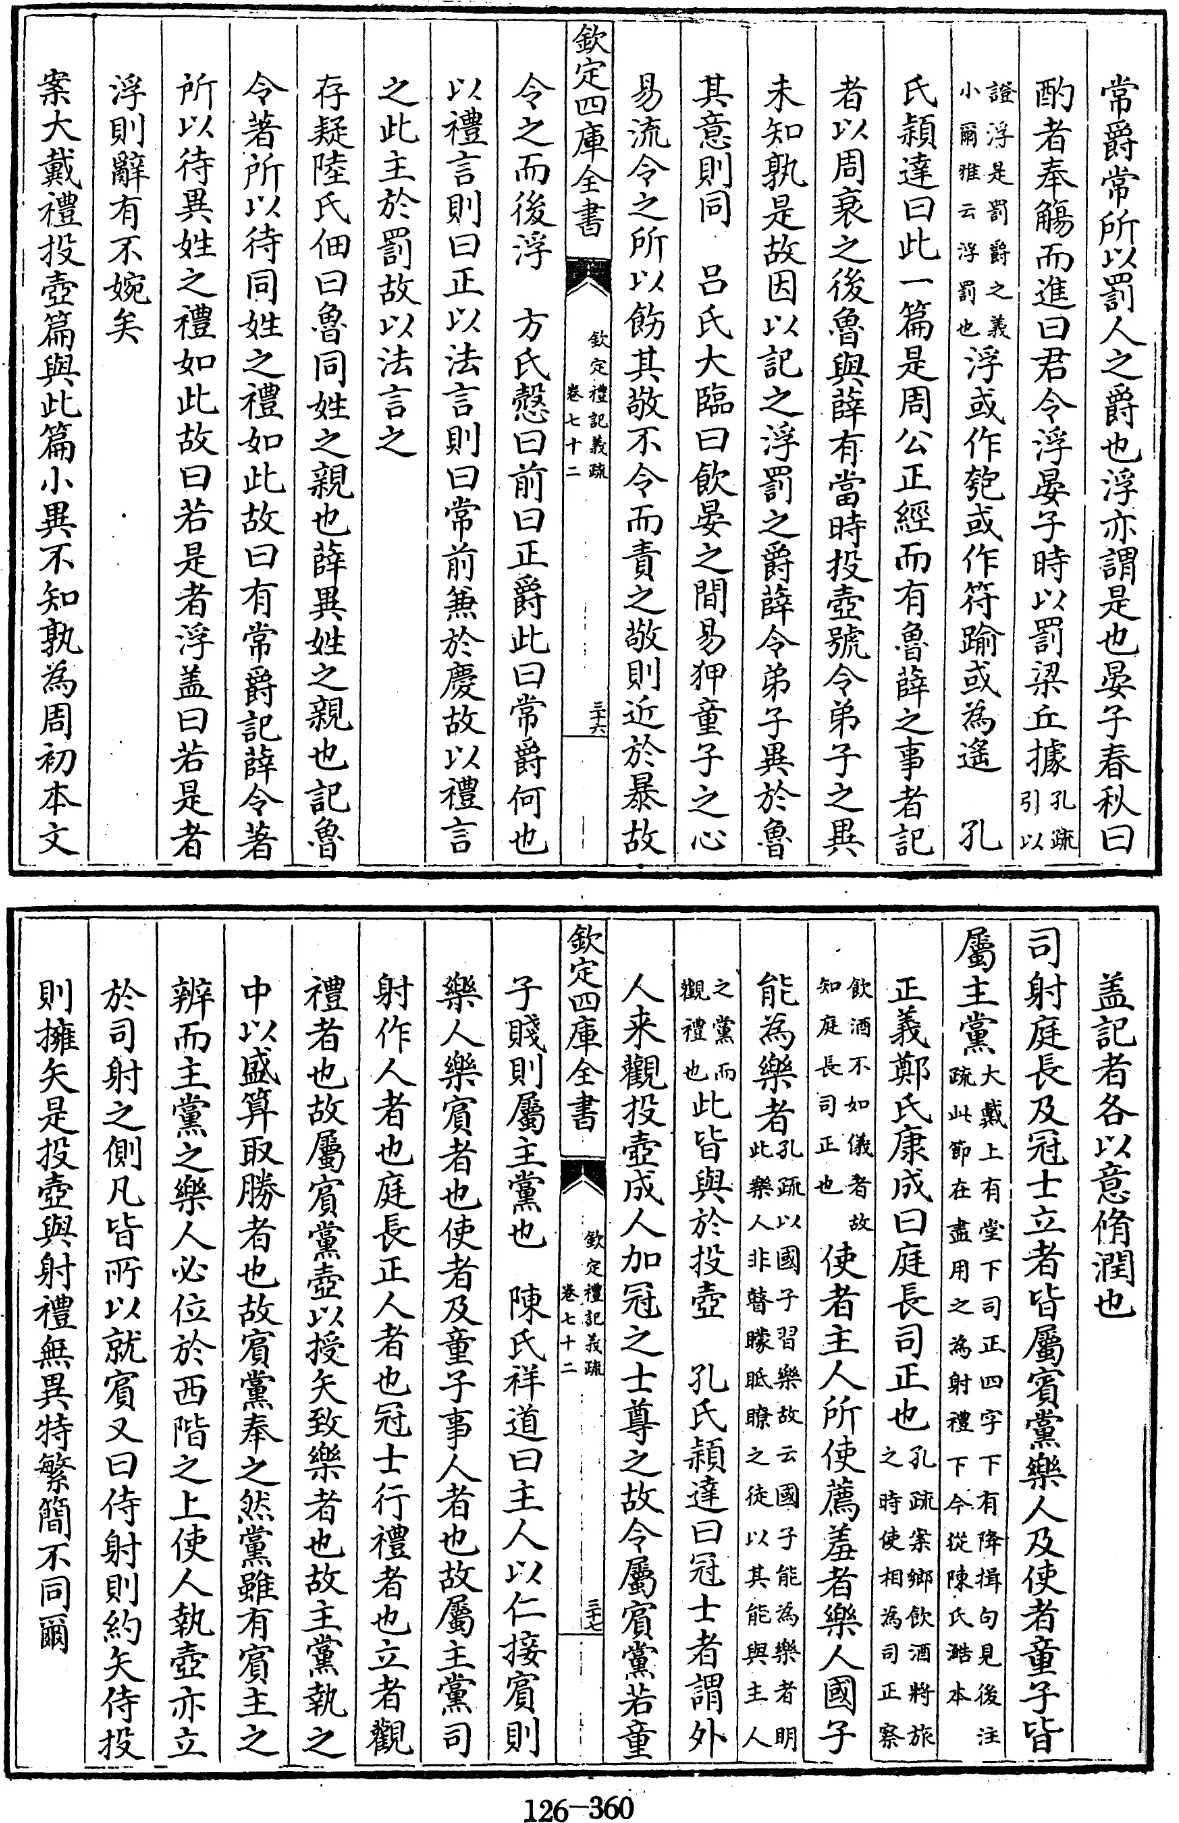 常爵常所以罰人之爵也浮亦謂是也晏子春秋曰
酌者奉觴而進曰君令浮晏子時以罰梁丘據孔疏引以
證浮是罰爵之義小爾雅云浮罰也浮或作匏或作符踰或為遙　孔
氏穎達曰此一篇是周公正經而有魯薛之事者記
者以周衰之後魯與薛有當時投壺號令弟子之異
未知孰是故因以記之浮罰之爵薛令弟子異於魯
其意則同　呂氏大臨曰飲晏之間易狎童子之心
易流令之所以飭其敬不令而責之敬則近於暴故
欽定四庫全書　欽定禮記義疏卷七十二　三十六
令之而後浮　方氏慤曰前曰正爵此曰常爵何也
以禮言則曰正以法言則曰常前兼於慶故以禮言
之此主於罰故以法言之
存疑陸氏佃曰魯同姓之親也薛異姓之親也記魯
令著所以待同姓之禮如此故曰有常爵記薛令著
所以待異姓之禮如此故曰若是者浮盖曰若是者
浮則辭有不婉矣
案大戴禮投壺篇與此篇小異不知孰為周初本文
盖記者各以意脩潤也
司射庭長及冠士立者皆屬賓黨樂人及使者童子皆
屬主黨大戴上有堂下司正四字下有降揖句見後注疏此節在盡用之為射禮下今從陳氏澔本
正義鄭氏康成曰庭長司正也孔疏案鄉飲酒將旅之時使相為司正察
飲酒不如儀者故知庭長司正也　使者主人所使薦羞者樂人國子
能為樂者孔疏以國子習樂故云國子能為樂者明此樂人非瞽矇眂瞭之徒以其能與主人
之黨而觀禮也此皆與於投壺　孔氏穎達曰冠士者謂外
人来觀投壺成人加冠之士尊之故令屬賓黨若童
欽定四庫全書　欽定禮記義疏卷七十二　三十七
子賤則屬主黨也　陳氏祥道曰主人以仁接賓則
樂人樂賓者也使者及童子事人者也故屬主黨司
射作人者也庭長正人者也冠士行禮者也立者觀
禮者也故屬賓黨壺以授矢致樂者也故主黨執之
中以盛算取勝者也故賓黨奉之然黨雖有賓主之
辨而主黨之樂人必位於西階之上使人執壺亦立
於司射之側凡皆所以就賓又曰侍射則約矢侍投
則擁矢是投壺與射禮無異特繁簡不同爾
126-360